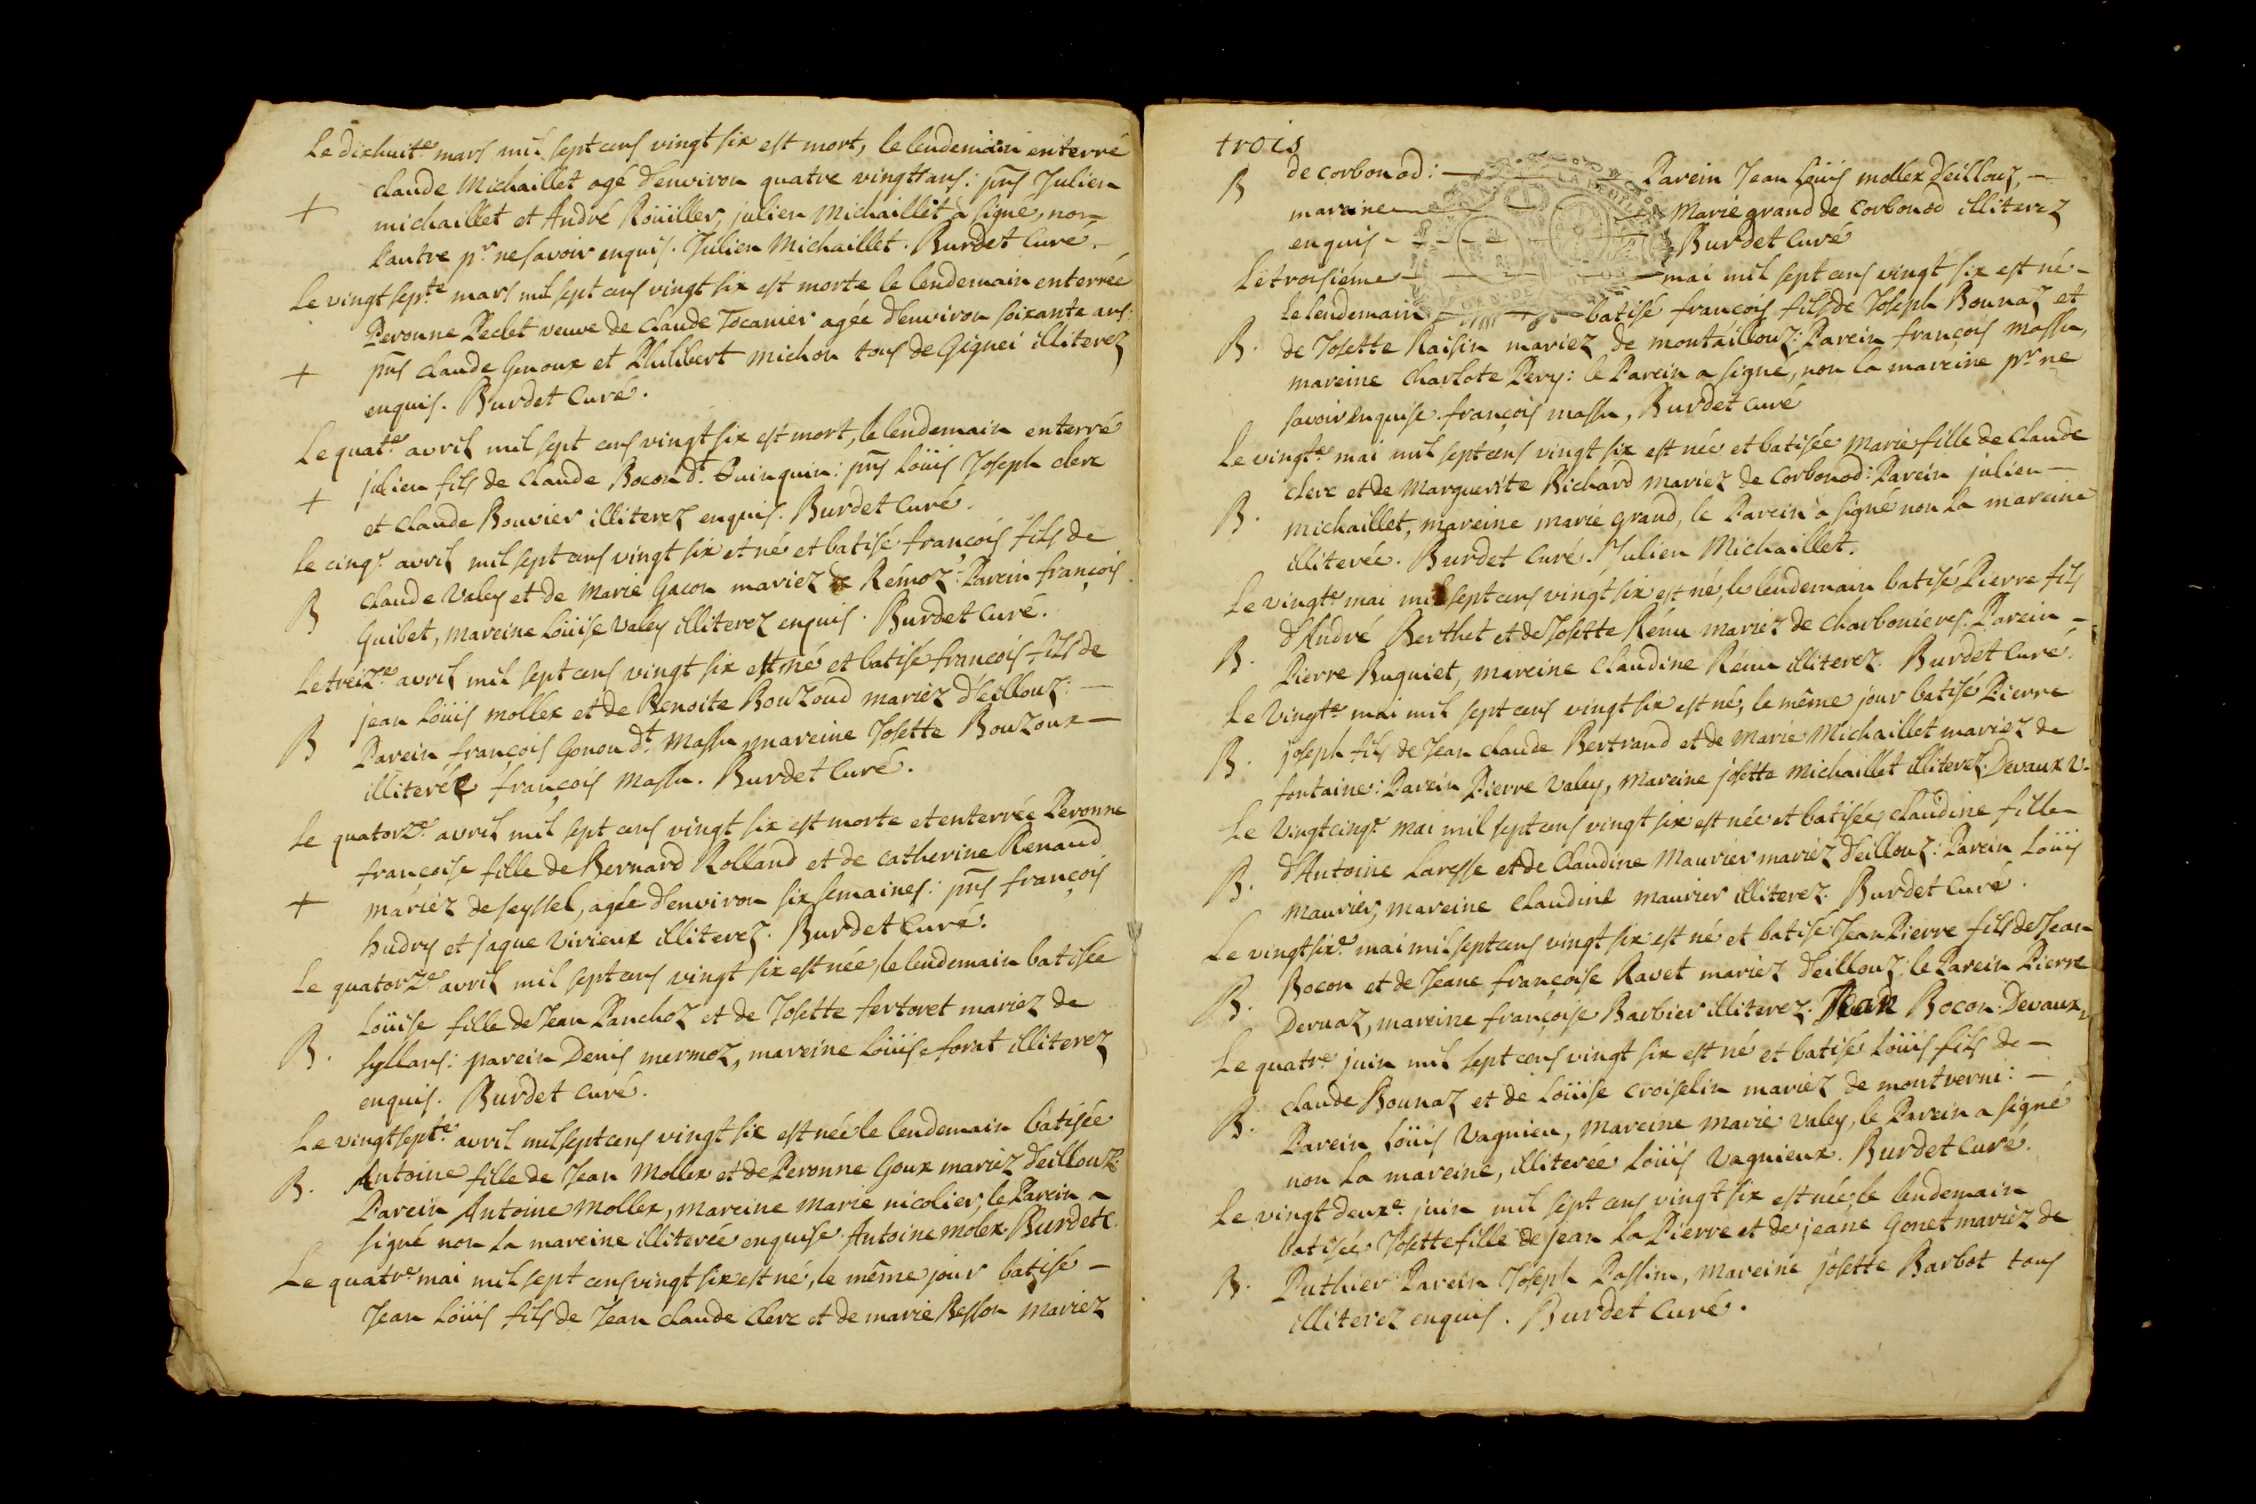 Le dixhuit.e mars mil sept cens vingt six est mort, le lendemain enterré
claude Michaillet agé d'environ quatre vingt ans: pns Julien
+ michaillet et André Roüiller, julien Michaillet a signé, non
l'autre pr. ne savoir enquis. Julien Michaillet. Burdet Curé.
Le vingt sept.e mars mil sept cens vingt six est morte le lendemain enterrée
Peronne Peclet veuve de claude Tocanier agée d'environ soixante ans:
+ pns claude Genoux et Philibert michon tous de Gignei illiterez
enquis. Burdet Curé.
Le quat.e avril mil sept cens vingt six est mort, le lendemain enterré
+ julien fils de claude Bocon dt. Quinquin: pns Loüis Joseph clerc
et claude Bouvier illiterez enquis. Burdet Curé.
Le cinq.e avril mil sept cens vingt six et né et batisé françois fils de
B claude Valey et de Marie Gacon mariez de Rémoz: Parein françois
Guibet, mareine Loüise Valey illiterez enquis. Burdet Curé.
Le treiz.e avril mil sept cens vingt six est né et batisé françois fils de
jean Loüis mollex et de Benoite Bouzoud mariez d'eillouz: —
B Parein françois Gonon dt. Massu, mareine Josette Bouzoux —
illiterée françois massu. Burdet Curé.
Le quatorz.e avril mil sept cens vingt six est morte et enterrée Peronne
françoise fille de Bernard Rolland et de catherine Renaud
+ mariez de seyssel, agée d'environ six semaines: pns françois
hudry et jaque Vivieux illiterez. Burdet Curé.
Le quatorz.e avril mil sept cens vingt six est née, le lendemain batisée
B. Loüise fille de Jean Panchoz et de Josette fertoret mariez de
syllans: parein Denis mermoz, mareine Loüise forat illiterez
enquis. Burdet Curé.
Le vingt sept.e avril mil sept cens vingt six est née le lendemain batisée
B. Antoine fille de Jean Mollex et de Peronne Goux mariez d'eillouz:
Parein Antoine mollex, mareine Marie nicolier, le Parein a
signé non la mareine illiterée enquise. Antoine molex Burdet C.
Le quatr.e mai mil sept cens vingt six est né, le même jour batisé —
Jean Loüis fils de Jean claude clerc et de marie Besson mariez
trois
B de corbonod: — Parein Jean Loüis mollex d'eillouz, —
mareine — Marie grand de Corbonod illiterez
enquis — Burdet Curé
Le troisieme — mai mil sept cens vingt six est né —
le lendemain — batisé françois fils de Joseph Bounaz et
B. de Josette Raisin mariez de montaillouz: Parein françois massu,
mareine Charlote Pery: le Parein a signé, non la mareine pr. ne
savoir enquise. françois massu, Burdet curé
Le vingt.e mai mil sept cens vingt six est née et batisée Marie fille de claude
clerc et de Marguerite Richard mariez de Corbonod: Parein julien —
B. michaillet, mareine marie grand, le Parein a signé non la mareine
illiterée. Burdet Curé. Julien Michaillet.
Le vingt.e mai mil sept cens vingt six est né, le lendemain batisé Pierre fils
B. d'André Berthet et de Josette Rému mariez de charbonieres: Parein —
Pierre Buquiet, mareine claudine Rému illiterez. Burdet Curé.
Le Vingt.e mai mil sept cens vingt six est né, le même jour batisé Pierre
B. joseph fils de Jean claude Bertrand et de Marie Michaillet mariez de
fontaine: Parein Pierre Valey, mareine josette michaillet illiterez. Devaux V.
Le Vingt cinq.e mai mil sept cens vingt six est née et batisée claudine fille
B. d'Antoine Laresse et de claudine Maurier mariez d'eillouz: Parein Loüis
maurier, mareine claudine maurier illiterez. Burdet Curé.
Le vingt six.e mai mil sept cens vingt six est né et batisé Jean Pierre fils de Jean
B. Bocon et de Jeane françoise Ravet mariez d'eillouz: le Parein Pierre
Dernaz, mareine françoise Barbier illiterez. Jean Bocon. Devaux v.
Le quatr.e juin mil sept cens vingt six est né et batisé Loüis fils de —
B. claude Bounaz et de Loüise croiselin mariez de montverni: —
Parein Loüis Vagnieu, mareine marie valey, le Parein a signé
non la mareine, illiterée Loüis Vagnieux. Burdet Curé.
Le vingt deux.e juin mil sept cens vingt six est née, le lendemain
batisée Josette fille de jean la Pierre et de jeane Gonet mariez de
B. Puthier Parein Joseph Passin, mareine josette Barbot tous
illiterez enquis. Burdet Curé.